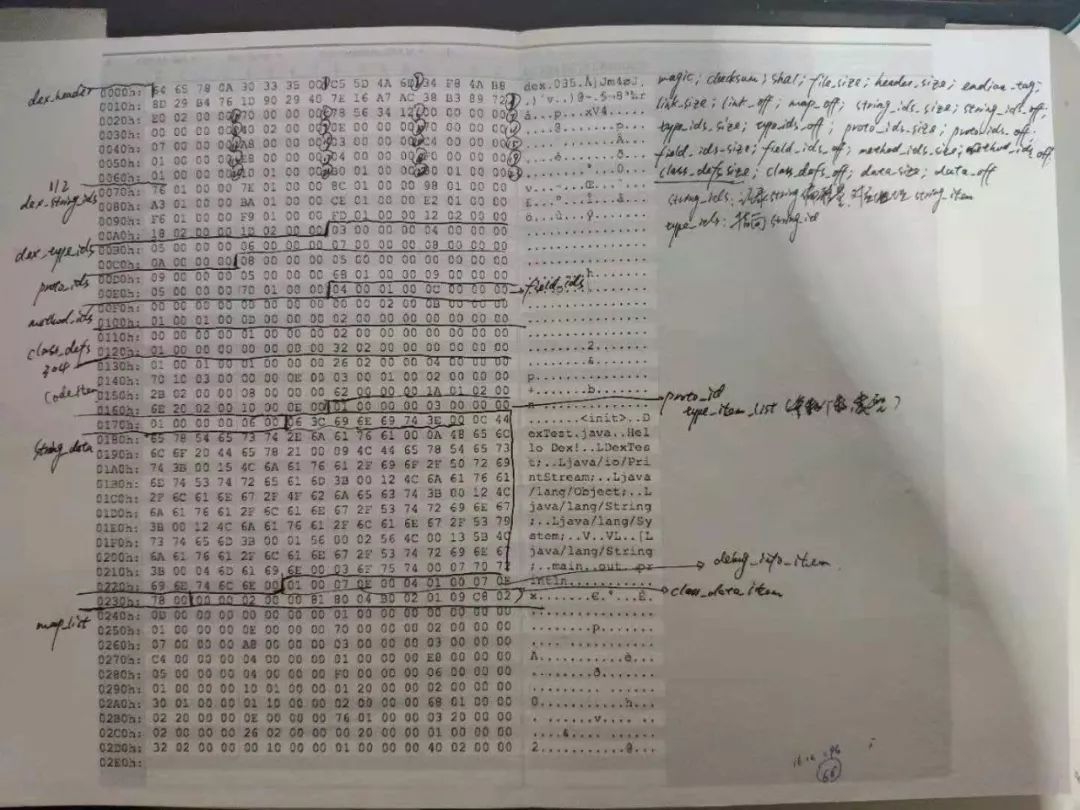 dex_header
0000h: 64 65 78 0A 30 33 35 00 C5 5D 4A 6D 34 F8 4A B8 dex.035.
0010h: 8D 29 B4 76 1D 90 29 40 7E 16 A7 AC 38 B3 89 72
0020h: E0 02 00 00 70 00 00 00 78 56 34 12 00 00 00 00
0030h: 00 00 00 00 40 02 00 00 0E 00 00 00 70 00 00 00
0040h: 07 00 00 00 A8 00 00 00 03 00 00 00 C4 00 00 00
0050h: 01 00 00 00 E8 00 00 00 04 00 00 00 F0 00 00 00
0060h: 01 00 00 00 10 01 00 00
magic; checksum; sha1; file_size; header_size; endian_tag;
link_size; link_off; map_off; string_ids_size; string_ids_off;
type_ids_size; type_ids_off; proto_ids_size; proto_ids_off;
field_ids_size; field_ids_off; method_ids_size; method_ids_off
class_defs_size; class_defs_off; data_size; data_off
string_ids: string string_item
type_ids: 指向 string_id
1/2
dex_string_ids
0070h: 76 01 00 00 7E 01 00 00 8C 01 00 00 98 01 00 00
0080h: A3 01 00 00 BA 01 00 00 CE 01 00 00 E2 01 00 00
0090h: F6 01 00 00 F9 01 00 00 FD 01 00 00 12 02 00 00
00A0h: 18 02 00 00 1D 02 00 00 03 00 00 00 04 00 00 00
dex_type_ids
00B0h: 05 00 00 00 06 00 00 00 07 00 00 00 08 00 00 00
00C0h: 0A 00 00 00 08 00 00 00 05 00 00 00 00 00 00 00
proto_ids
00D0h: 09 00 00 00 05 00 00 00 68 01 00 00 09 00 00 00
00E0h: 05 00 00 00 70 01 00 00 04 00 01 00 0C 00 00 00
field_ids
00F0h: 00 00 00 00 00 00 00 00 00 00 02 00 0B 00 00 00
method_ids
0100h: 01 00 01 00 0D 00 00 00 02 00 00 00 00 00 00 00
0110h: 00 00 00 00 01 00 00 00 02 00 00 00 00 00 00 00
class_defs
0120h: 01 00 00 00 00 00 00 00 32 02 00 00 00 00 00 00
304
0130h: 01 00 01 00 01 00 00 00 26 02 00 00 04 00 00 00
0140h: 70 10 03 00 00 00 0E 00 03 00 01 00 02 00 00 00
CodeItem
0150h: 2B 02 00 00 08 00 00 00 62 00 00 00 1A 01 02 00
0160h: 6E 20 02 00 10 00 0E 00 01 00 00 00 03 00 00 00
proto_id
type_item_list
0170h: 01 00 00 00 06 00 06 3C 69 6E 69 74 3E 00 0C 44 .......<init>..D
0180h: 65 78 54 65 73 74 2E 6A 61 76 61 00 0A 48 65 6C exTest.java..Hel
string_data
0190h: 6C 6F 20 44 65 78 21 00 09 4C 44 65 78 54 65 73 lo Dex!..LDexTes
01A0h: 74 3B 00 15 4C 6A 61 76 61 2F 69 6F 2F 50 72 69 t;..Ljava/io/Pri
01B0h: 6E 74 53 74 72 65 61 6D 3B 00 12 4C 6A 61 76 61 ntStream;..Ljava
01C0h: 2F 6C 61 6E 67 2F 4F 62 6A 65 63 74 3B 00 12 4C /lang/Object;..L
01D0h: 6A 61 76 61 2F 6C 61 6E 67 2F 53 74 72 69 6E 67 java/lang/String
01E0h: 3B 00 12 4C 6A 61 76 61 2F 6C 61 6E 67 2F 53 79 ;..Ljava/lang/Sy
01F0h: 73 74 65 6D 3B 00 01 56 00 02 56 4C 00 13 5B 4C stem;..V..VL..[L
0200h: 6A 61 76 61 2F 6C 61 6E 67 2F 53 74 72 69 6E 67 java/lang/String
0210h: 3B 00 04 6D 61 69 6E 00 03 6F 75 74 00 07 70 72 ;..main..out..pr
debug_info_item
0220h: 69 6E 74 6C 6E 00 01 00 07 0E 00 04 01 00 07 0E intln...........
0230h: 78 00 00 00 02 00 00 81 80 04 B0 02 01 09 C8 02
class_data_item
map_list
0240h: 0D 00 00 00 00 00 00 00 01 00 00 00 00 00 00 00
0250h: 01 00 00 00 0E 00 00 00 70 00 00 00 02 00 00 00
0260h: 07 00 00 00 A8 00 00 00 03 00 00 00 03 00 00 00
0270h: C4 00 00 00 04 00 00 00 01 00 00 00 E8 00 00 00
0280h: 05 00 00 00 04 00 00 00 F0 00 00 00 06 00 00 00
0290h: 01 00 00 00 10 01 00 00 01 20 00 00 02 00 00 00
02A0h: 30 01 00 00 01 10 00 00 02 00 00 00 68 01 00 00
02B0h: 02 20 00 00 0E 00 00 00 76 01 00 00 03 20 00 00
02C0h: 02 00 00 00 26 02 00 00 00 20 00 00 01 00 00 00
02D0h: 32 02 00 00 00 10 00 00 01 00 00 00 40 02 00 00
02E0h: